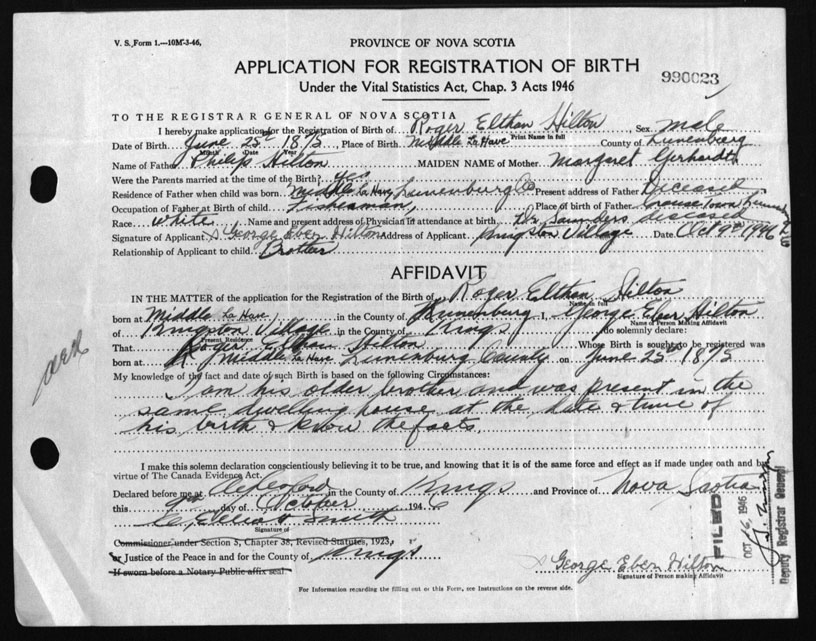 V. S. Form 1.—10M-3-46,
PROVINCE OF NOVA SCOTIA
APPLICATION FOR REGISTRATION OF BIRTH
990023
Under the Vital Statistics Act, Chap. 3 Acts 1946
TO THE REGISTRAR GENERAL OF NOVA SCOTIA
I hereby make application for the Registration of Birth of Roger Elthan Hilton, Sex male
Print Name in full
Date of Birth June 25th 1875, Place of Birth Middle La Have County of Lunenburg
Month Date Year
Name of Father Philip Hilton MAIDEN NAME of Mother Margaret Gerhardt
Were the Parents married at the time of the Birth? yes
Residence of Father when child was born Middle La Have, Lunenburg Co Present address of Father Deceased
Occupation of Father at Birth of child Fisherman, Place of birth of Father Crousetown
Race white Name and present address of Physician in attendance at birth Dr Saunders deceased
Signature of Applicant George Eben Hilton Address of Applicant Kingston Village Date Oct 9th 1946
Relationship of Applicant to child Brother
AFFIDAVIT
IN THE MATTER of the application for the Registration of the Birth of Roger Elthan Hilton
Name in full
born at Middle La Have in the County of Lunenburg I, George Eben Hilton
Name of Person Making Affidavit
of Kingston Village in the County of Kings do solemnly declare:
Present Residence
That Roger Elthan Hilton Whose Birth is sought to be registered was
born at Middle La Have Lunenburg County on June 25th 1875
My knowledge of the fact and date of such Birth is based on the following Circumstances:
I am his older brother and was present in the
same dwelling house at the date & time of
his birth & know the facts.
I make this solemn declaration conscientiously believing it to be true, and knowing that it is of the same force and effect as if made under oath and by
virtue of The Canada Evidence Act.
Declared before me at Aylesford in the County of Kings and Province of Nova Scotia
this 9th day of October 1946
Smith
Signature of
Commissioner under Section 5, Chapter 38, Revised Statutes, 1923,
or Justice of the Peace in and for the County of Kings
If sworn before a Notary Public affix seal
George Eben Hilton
Signature of Person making Affidavit
For Information regarding the filling out of this Form, see Instructions on the reverse side.
FILED
OCT 16 1946
Deputy Registrar General